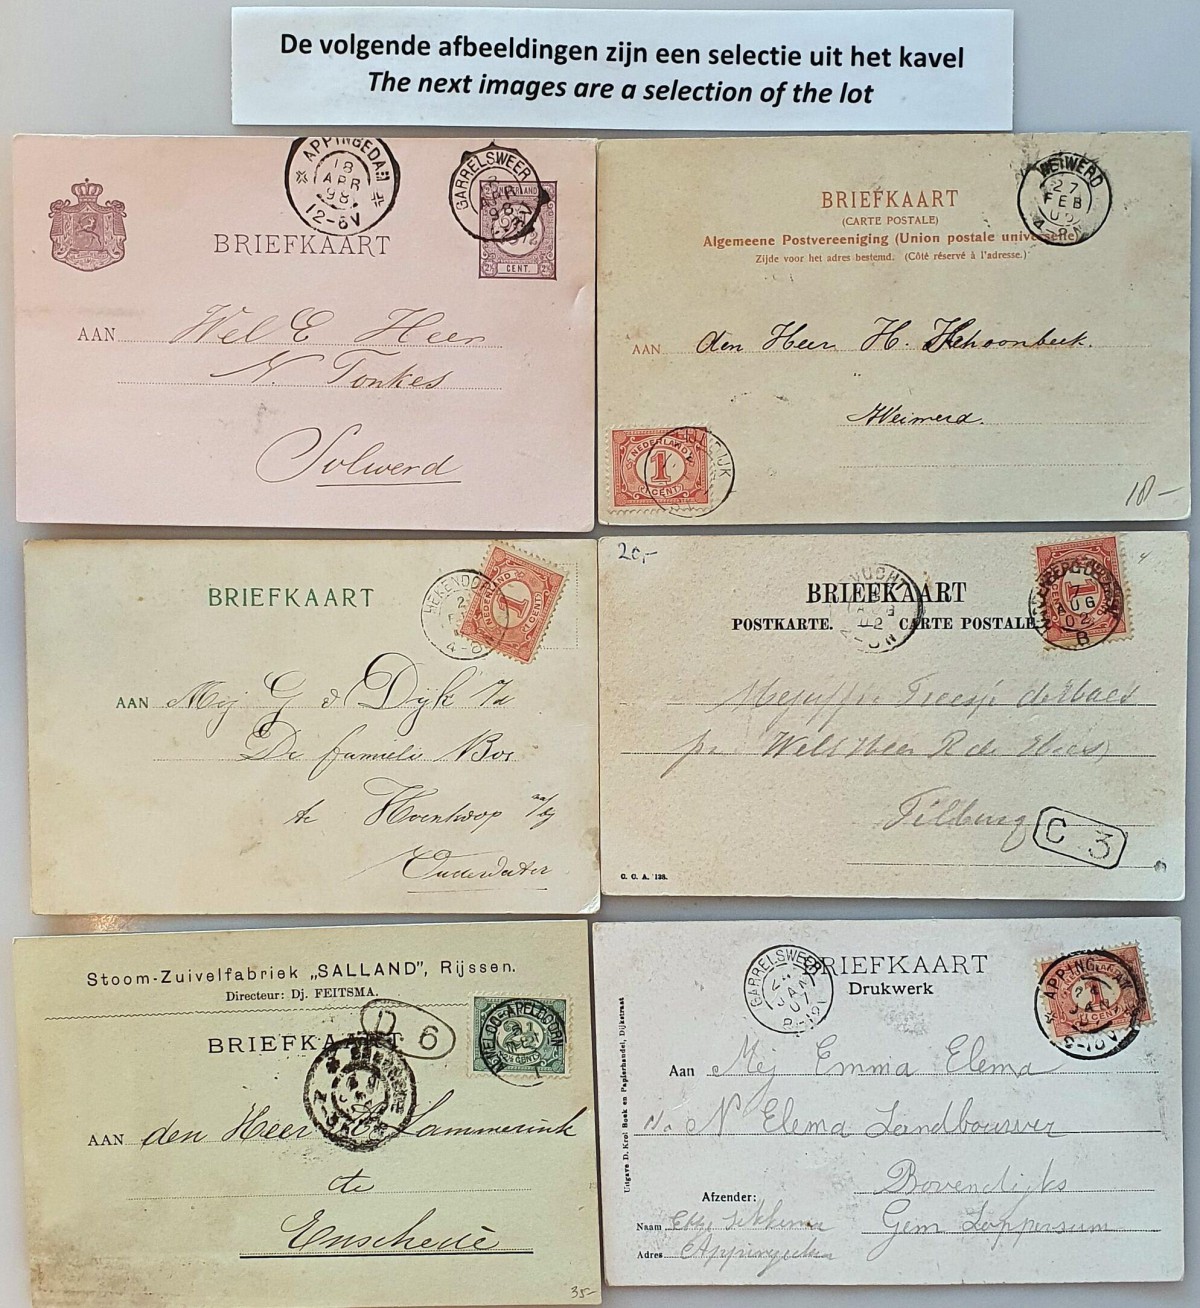 De volgende afbeeldingen zijn een selectie uit het kavel
The next images are a selection of the lot
APPINGEDAM
18
APR
98
12-6V
GARRELSWEER
APR
98
NEDERLAND
2½
CENT.
BRIEFKAART
AAN
Wel E Heer
N. Tonkes
Solwerd
WEIWERD
27
FEB
BRIEFKAART
(CARTE POSTALE)
Algemeene Postvereeniging (Union postale universelle)
Zijde voor het adres bestemd. (Côté réservé à l'adresse.)
AAN
den Heer H. Schoonbeek.
Weiwerd.
NEDERLAND
1
(1 CENT)
18-
HEKENDORP
NEDERLAND
1
(1 CENT)
BRIEFKAART
AAN
Mej G v Dijk
De familie Bos
te Hoenkoop
Ouderwater
20,-
BRIEFKAART
POSTKARTE. CARTE POSTALE
1
7
AUG
02
B
Tilburg
C 3
C. C. A. 138.
Stoom-Zuivelfabriek „SALLAND", Rijssen.
Directeur: Dj. FEITSMA.
D 6
BRIEFKAART
ALMELOO-APELDOORN
AAN
den Heer Lammerink
te
Enschede
35-
GARRELSWEER
JAN
07
8-12V
BRIEFKAART
Drukwerk
APPINGEDAM
JAN
1
Uitgave D. Krol Boek en Papierhandel, Dijkstraat
Aan
Mej Emma Elema
N Elema Landbouwer
Bovendijks
Gem Loppersum
Afzender:
Naam
Adres